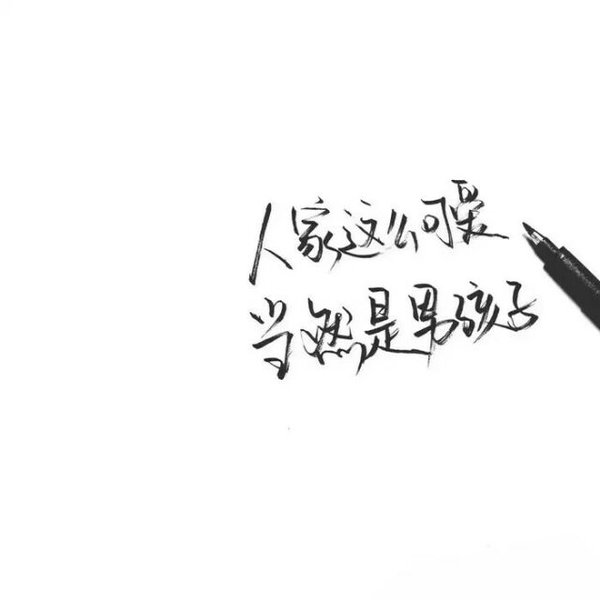 人家这么可爱
当然是男孩子